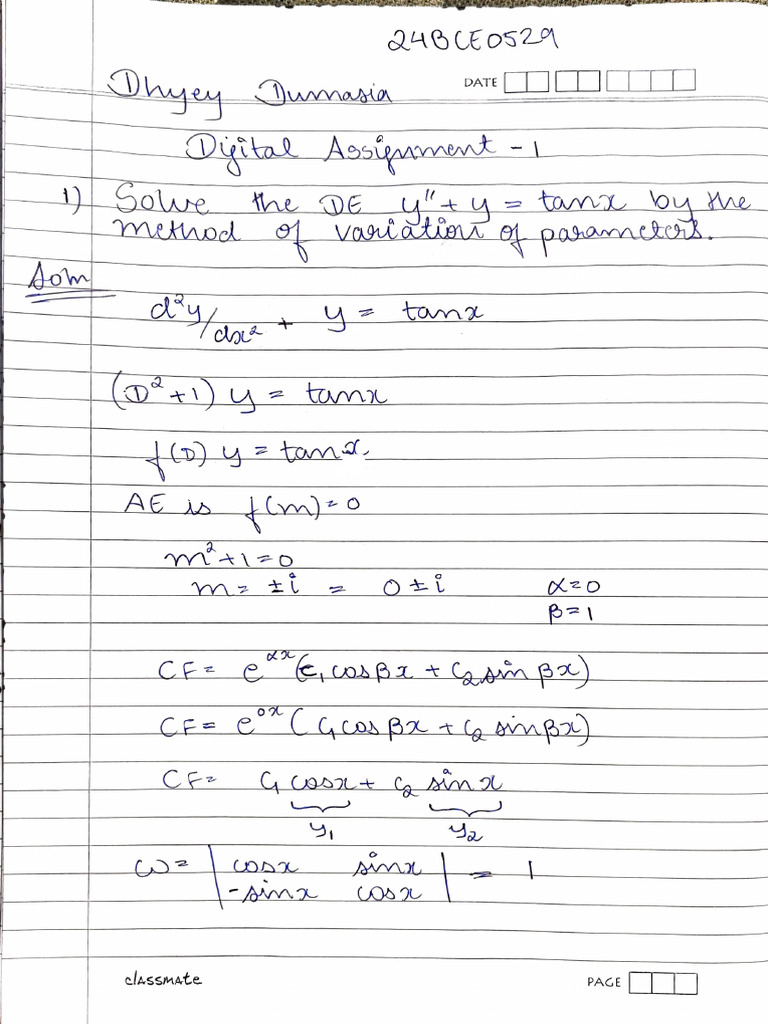 24BCE0529
Dhyey Dumasia DATE
Digital Assignment - 1
1) Solve the DE y'' + y = tanx by the
method of variation of parameters.
Soln
d²y/dx² + y = tanx
(D² + 1) y = tanx
f(D) y = tanx.
AE is f(m) = 0
m² + 1 = 0
m = ±i = 0 ± i α = 0
β = 1
CF = e^αx (c₁ cosβx + c₂ sin βx)
CF = e^0x (c₁ cos βx + c₂ sinβx)
CF = c₁ cosx + c₂ sinx
y₁ y₂
ω = | cosx sinx | = 1
| -sinx cosx |
classmate PAGE